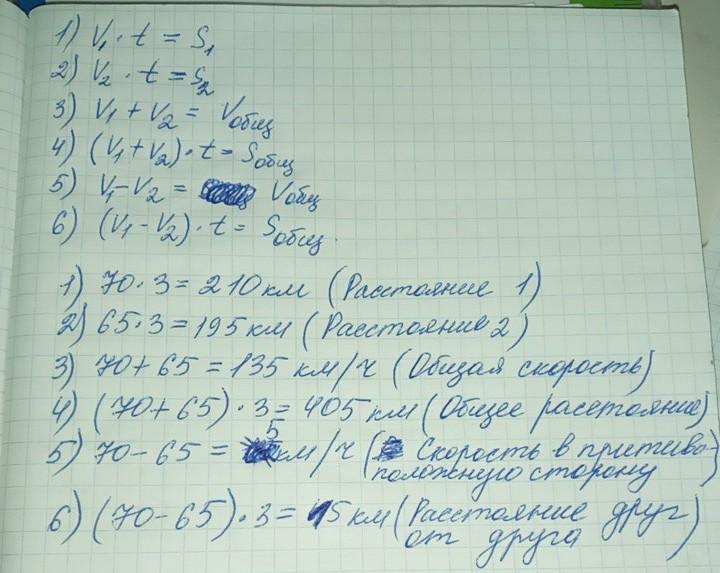 1) V₁ · t = S₁
2) V₂ · t = S₂
3) V₁ + V₂ = Vобщ
4) (V₁ + V₂) · t = Sобщ
5) V₁ - V₂ = Vобщ
6) (V₁ - V₂) · t = Sобщ.
1) 70 · 3 = 210 км (Расстояние 1)
2) 65 · 3 = 195 км (Расстояние 2)
3) 70 + 65 = 135 км/ч (Общая скорость)
4) (70 + 65) · 3 = 405 км (Общее расстояние)
5) 70 - 65 = 5 км/ч (Скорость в притиво-
положную сторону)
6) (70 - 65) · 3 = 15 км (Расстояние друг
от друга)